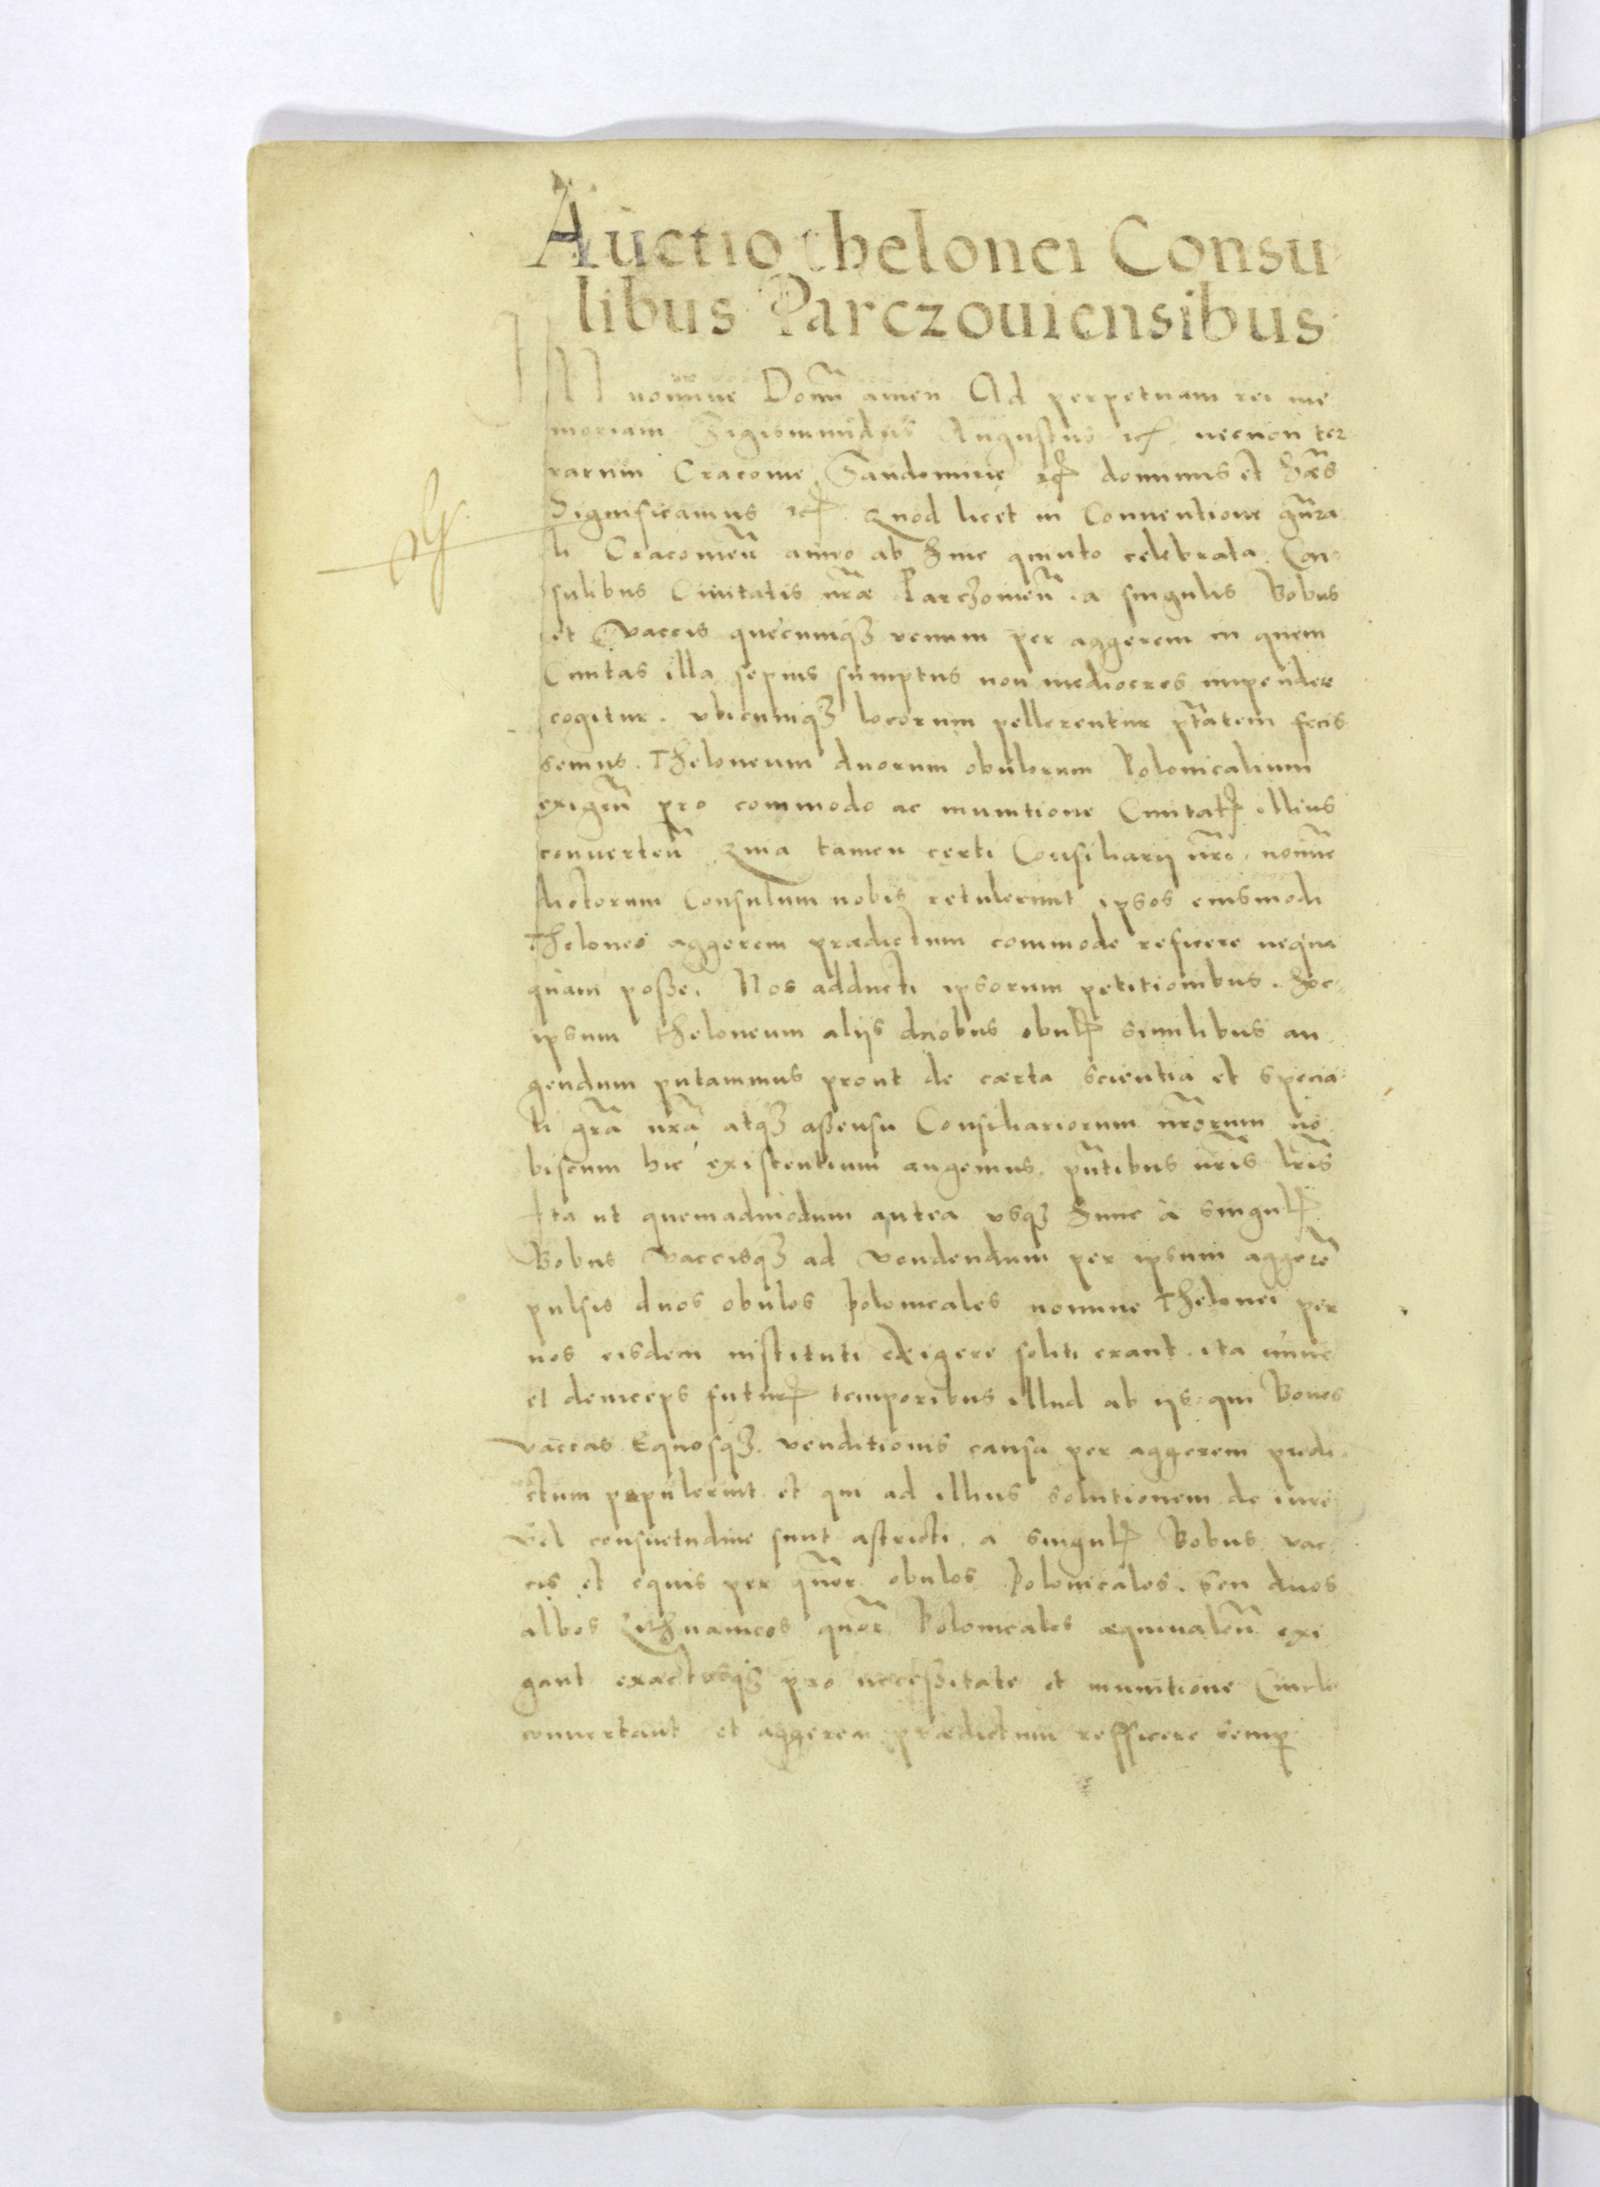 Auctio thelonei Consu
libus Parczouiensibus
IN nomine Domi amen Ad perpetuam rei me
moriam Sigismundus Augustus etc. necnon ter
rarum Cracouie Sandomirie etc dominus et hæs
Significamus etc. Quod licet in Conuentione gnra
li Cracouien anno ab hinc quinto celebrata. Con
sulibus Ciuitatis nræ Parczouien. a singulis Bobus
et Vaccis quecumqz venum per aggerem in quem
Ciuitas illa sepius sumptus non mediocres impendere
cogitur. vbicumqz locorum pellerentur ptatem fecis
semus. Theloneum duorum obulorum Polonicalium
exigen pro commodo ac munitione Ciuitat illius
conuerten Quia tamen certi Consiliarij nri. nomine
dictorum Consulum nobis retulerunt ipsos eiusmodi
theloneo aggerem prædictum commode reficere nequa
quam posse. Nos adducti ipsorum petitionibus. hoc
ipsum theloneum aliis duobus obul similibus au
gendum putauimus prout de certa scientia et specia
li gra nra atqz assensu Consiliariorum nrorum no
biscum hic existentium augemus. pntibus nris lris
Ita ut quemadmodum antea vsqz hunc a singul
Bobus Vaccisqz ad vendendum per ipsum aggere
pulsis duos obulos polonicales nomine thelonei per
nos eisdem instituti exigere soliti erant. ita nunc
et deinceps futur temporibus illud ab ijs qui Boues
Vaccas Equosqz. venditionis causa per aggerem predi
ctum pepulerint et qui ad illius solutionem de iure
vel consuetudine sunt astricti. a singul Bobus vac
cis et equis per quor obulos Polonicales. seu duos
albos Lithuanicos quor Polonicales æquiualen exi
gant exactosqz pro necessitate et munitione Ciuile
conuertant et aggerem prædictum refficere semp